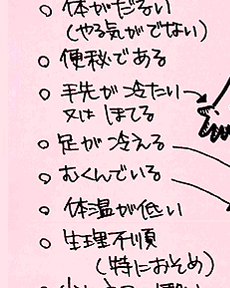 ○ 体がだるい
(やる気がでない)
○ 便秘である
○ 手先が冷たい
又は ほてる
○ 足が冷える
○ むくんでいる
○ 体温が低い
○ 生理不順
(特におそめ)